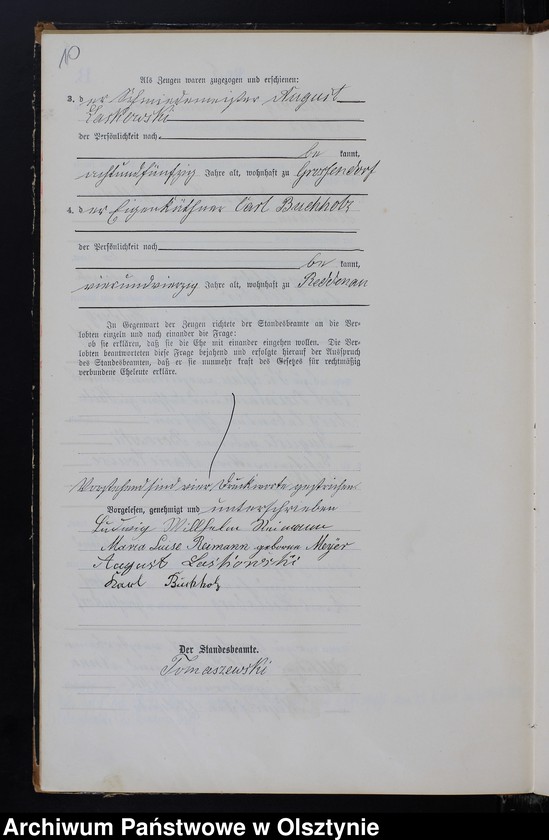 10
Als Zeugen waren zugezogen und erschienen:
3. der Schmiedemeister August
Laskowski
der Persönlichkeit nach
be kannt,
achtundfünfzig Jahre alt, wohnhaft zu Grossendorf
4. der Eigenkäthner Carl Buchholz
der Persönlichkeit nach
be kannt,
vierundvierzig Jahre alt, wohnhaft zu Reddenau
In Gegenwart der Zeugen richtete der Standesbeamte an die Ver-
lobten einzeln und nach einander die Frage:
ob sie erklären, daß sie die Ehe mit einander eingehen wollen. Die Ver-
lobten beantworteten diese Frage bejahend und erfolgte hierauf der Ausspruch
des Standesbeamten, daß er sie nunmehr kraft des Gesetzes für rechtmäßig
verbundene Eheleute erkläre.
Vorstehend sind vier Druckworte gestrichen
Vorgelesen, genehmigt und unterschrieben
Ludwig Willhelm Neimann
Maria Luise Reimann geborene Meyer
August Laskowski
Karl Buchholz
Der Standesbeamte.
Tomaszewski
Archiwum Państwowe w Olsztynie